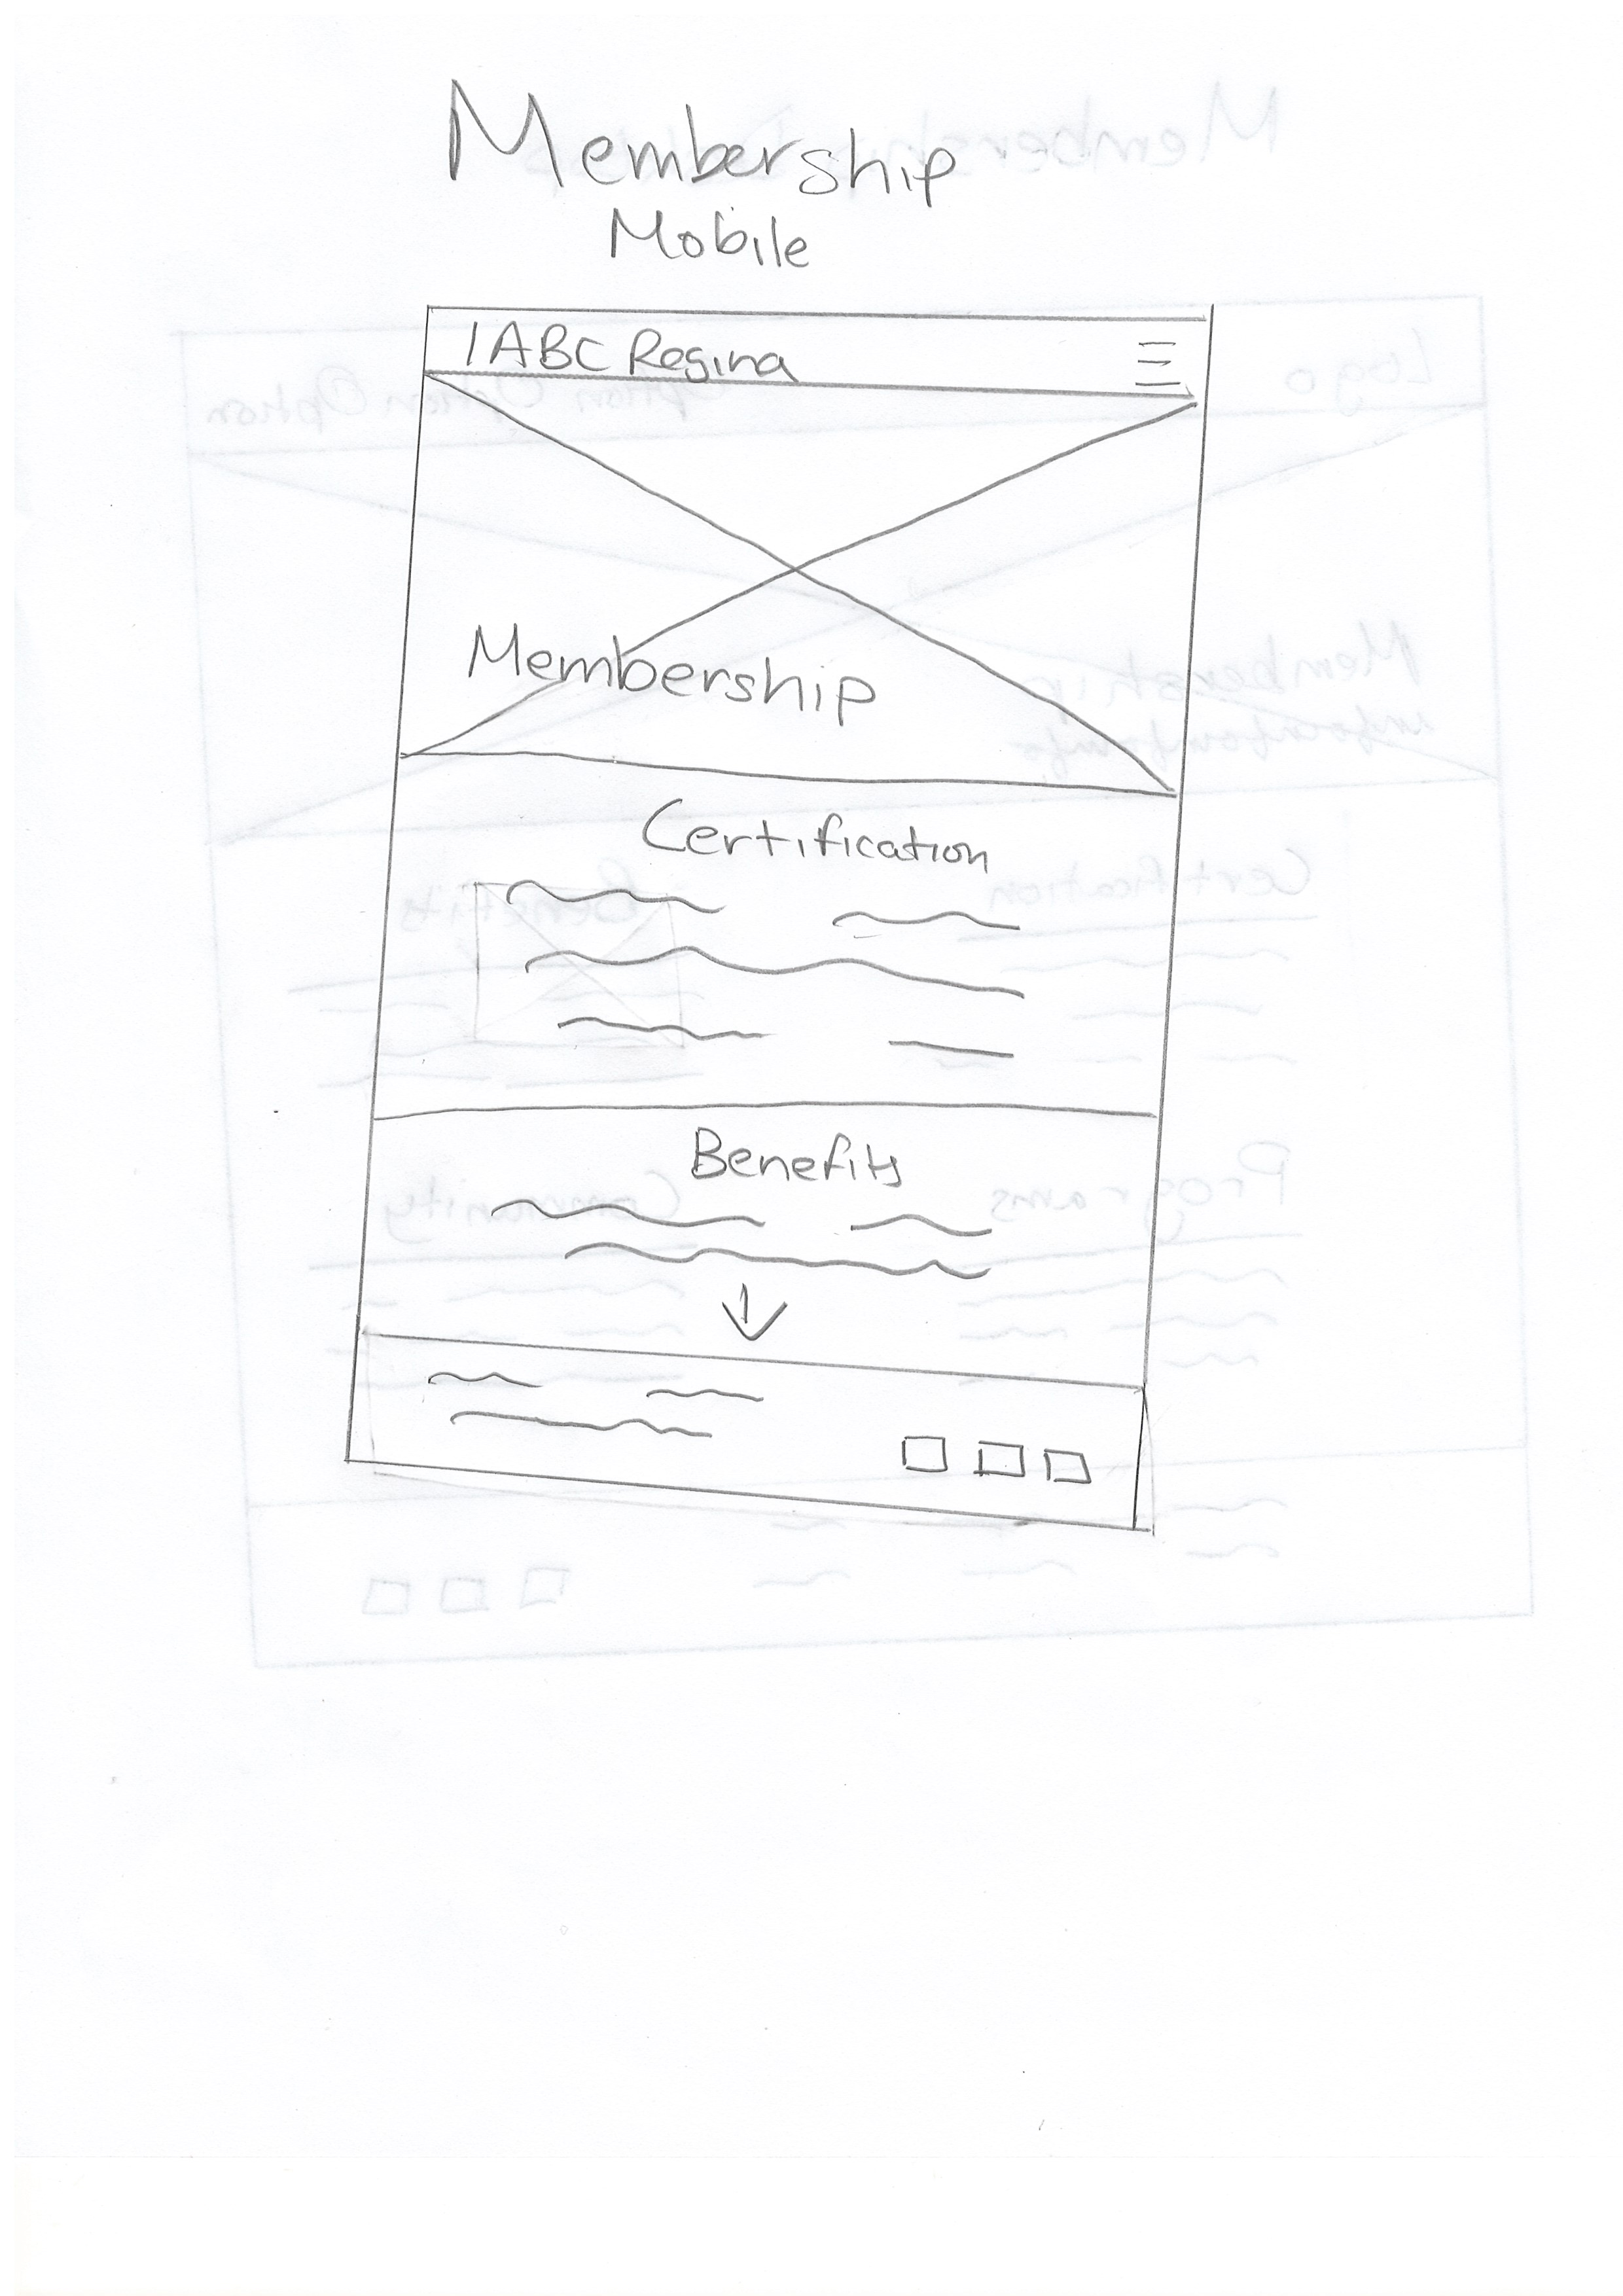 Membership
Mobile
IABC Regina
Membership
Certification
Benefits